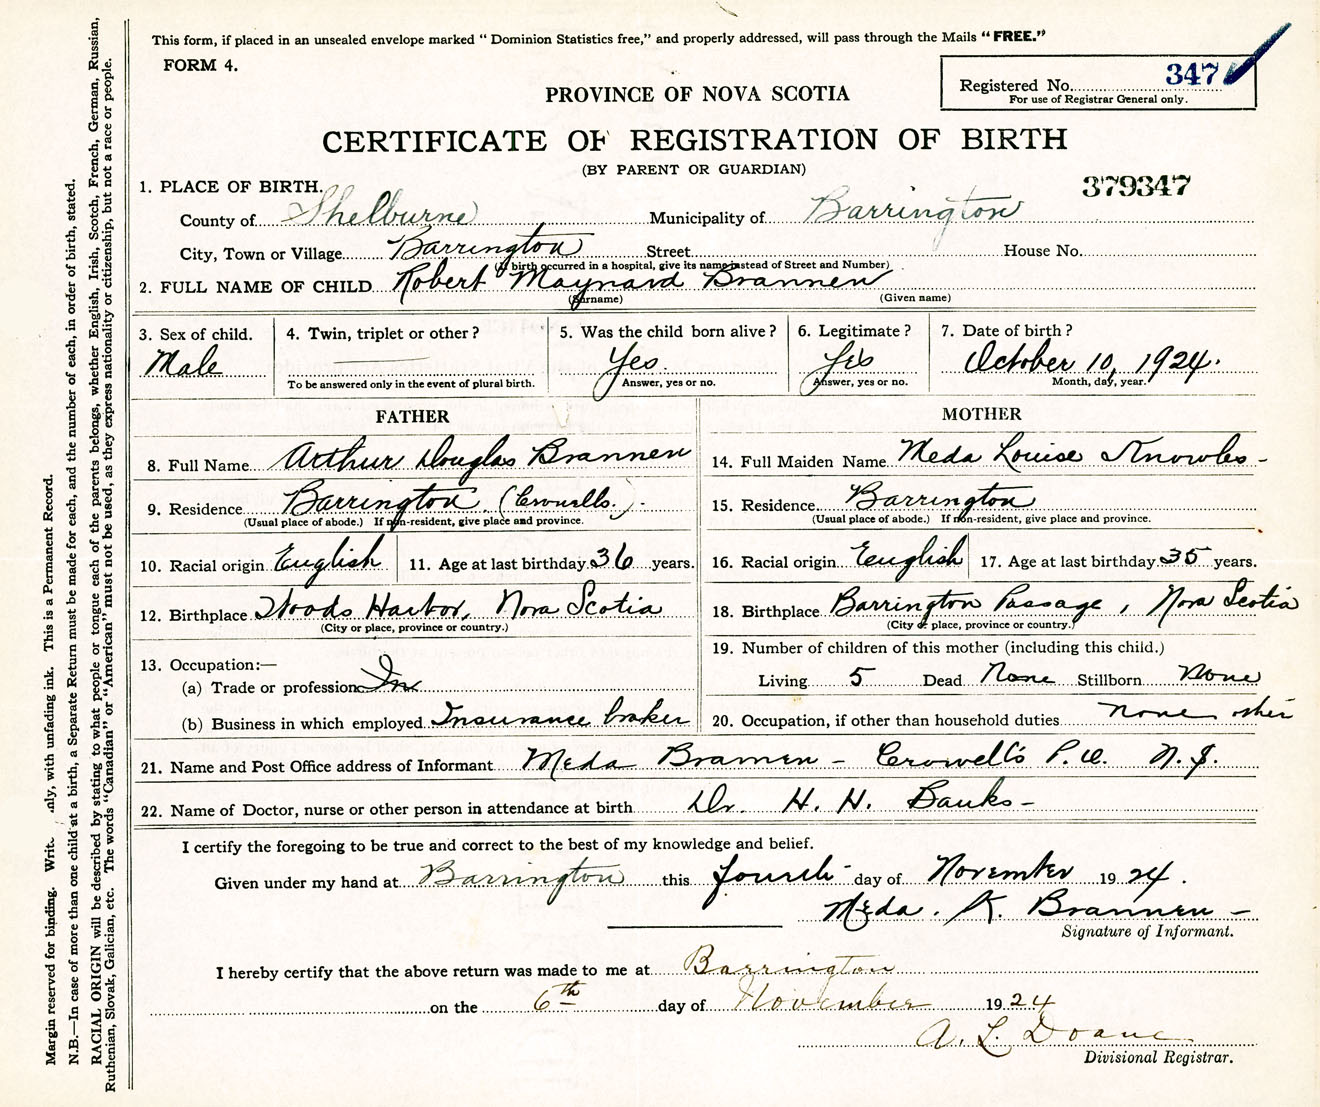 This form, if placed in an unsealed envelope marked " Dominion Statistics free," and properly addressed, will pass through the Mails "FREE."
FORM 4.
Registered No. 347
For use of Registrar General only.
PROVINCE OF NOVA SCOTIA
CERTIFICATE OF REGISTRATION OF BIRTH
(BY PARENT OR GUARDIAN)
379347
1. PLACE OF BIRTH.
County of Shelburne Municipality of Barrington
City, Town or Village Barrington Street House No.
(If birth occurred in a hospital, give its name instead of Street and Number)
2. FULL NAME OF CHILD Robert Maynard Brannen
(Surname) (Given name)
3. Sex of child. 4. Twin, triplet or other? 5. Was the child born alive? 6. Legitimate? 7. Date of birth?
Male Yes Yes October 10, 1924.
To be answered only in the event of plural birth. Answer, yes or no. Answer, yes or no. Month, day, year.
FATHER MOTHER
8. Full Name Arthur Douglas Brannen 14. Full Maiden Name Meda Louise Knowles -
9. Residence Barrington (Crowells.) 15. Residence Barrington
(Usual place of abode.) If non-resident, give place and province. (Usual place of abode.) If non-resident, give place and province.
10. Racial origin English 11. Age at last birthday 36 years. 16. Racial origin English 17. Age at last birthday 35 years.
12. Birthplace Woods Harbor, Nova Scotia 18. Birthplace Barrington Passage, Nova Scotia
(City or place, province or country.) (City or place, province or country.)
13. Occupation:— 19. Number of children of this mother (including this child.)
(a) Trade or profession In Living 5 Dead None Stillborn None
(b) Business in which employed Insurance broker 20. Occupation, if other than household duties none other
21. Name and Post Office address of Informant Meda Brannen - Crowell's P.O. N.S.
22. Name of Doctor, nurse or other person in attendance at birth Dr. H. H. Banks -
I certify the foregoing to be true and correct to the best of my knowledge and belief.
Given under my hand at Barrington this fourth day of November 1924.
Meda. K. Brannen -
Signature of Informant.
I hereby certify that the above return was made to me at Barrington
on the 6th day of November 1924
A. L. Doane
Divisional Registrar.
Margin reserved for binding. with unfading ink. This is a Permanent Record.
N.B.—In case of more than one child at a birth, a Separate Return must be made for each, and the number of each, in order of birth, stated.
RACIAL ORIGIN will be described by stating to what people or tongue each of the parents belongs, whether English, Irish, Scotch, French, German, Russian,
Ruthenian, Slovak, Galician, etc. The words "Canadian" or "American" must not be used, as they express nationality or citizenship, but not a race or people.